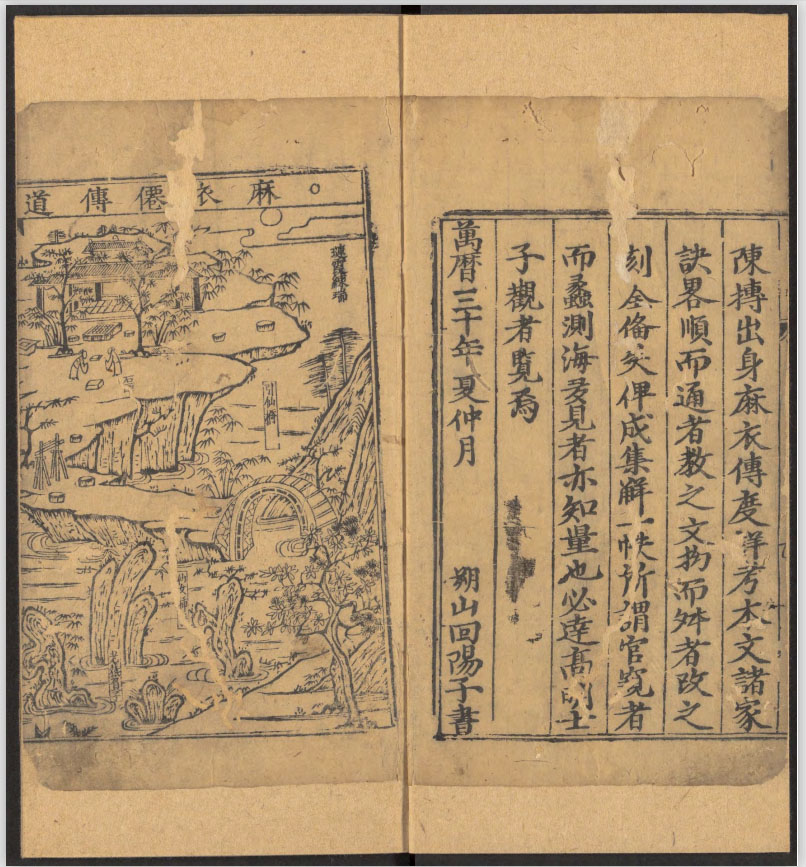 陳摶出身麻衣傳度詳考本文諸家
訣畧順而通者教之文拗而舛者改之
刻全俻矣俾成集解一帙所謂官覧者
而蠡測海多見者亦知量也必達高明士
子觀者覧焉
萬曆三十年夏仲月 朔山回陽子書
麻衣僊傳道
引仙橋